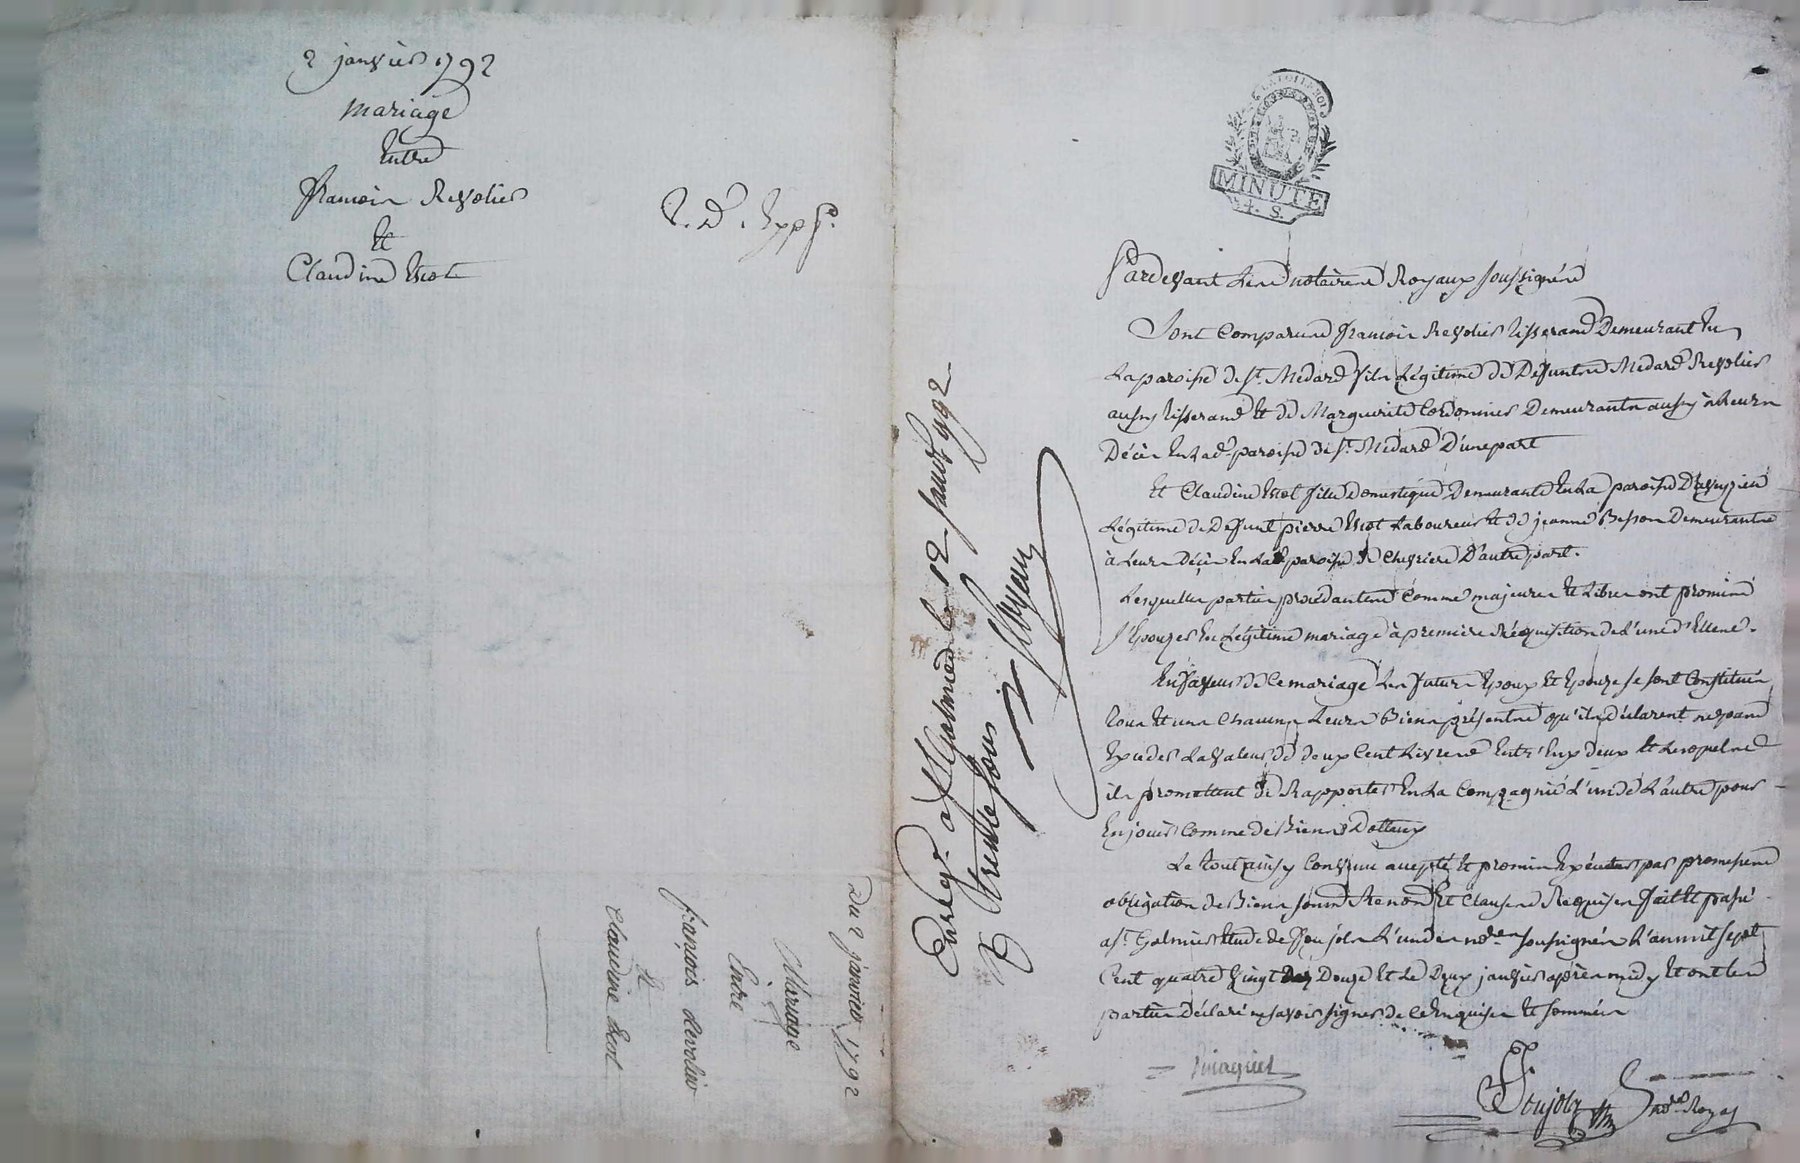 2 janvier 1792
mariage
Entre
francois Revolier
Et
Claudine Escot
Expp.
MINUTE
4. S.
Pardevant Les notaires Royaux soussignés
Sont Comparus francois Revolier tisserand Demeurant En
La paroisse de St. Medard fils Légitime de Defunts Medard Revolier
aussy tisserand Et de Marguerite Cordonnier Demeurants aussy à Leurs
Décès En Lad. paroisse de St. Medard D'une part
Et Claudine Escot fille domestique Demeurante En La paroisse D'aveyzieu
Légitime de Defunt pierre Escot Laboureur Et de jeanne Besson Demeurants
à Leurs Décès En La paroisse de Chevrieres D'autre part.
Lesquelles parties procedantes Comme majeures Et Libres ont promis
s'Epouzer En Légitime mariage à premiere Réquisition de L'une d'Elles.
En faveur de Ce mariage Les futurs Epoux Et Epouze se sont Constitués
tous Et uns Chacuns Leurs Biens présents qu'ils déclarent ne pas
Exceder La valeur de deux Cent Livres Entr'Eux deux Et Lesquels
ils promettent de Rapporter En La Compagnie L'un de L'autre pour
En jouir Comme de Biens Dotaux
Le tout ainsy Convenu accepté Et promis Exécuter par promesses
obligation de Biens soums. Renons. Et Clauses Requises fait Et passé
a St. Galmier Etude de Poujolz L'un des nores. soussignés L'an mil sept
Cent quatre vingt Douze Et Le Deux janvier après midy Et ont Les
parties Déclaré ne savoir signer de Ce Enquises Et sommées
Poujolz nore. Royal
Enregé. a St Galmier le 12 Janvr 1792
R trente sous
Du 2 janvier 1792
Mariage
Entre
françois Revolier
Et
Claudine Escot